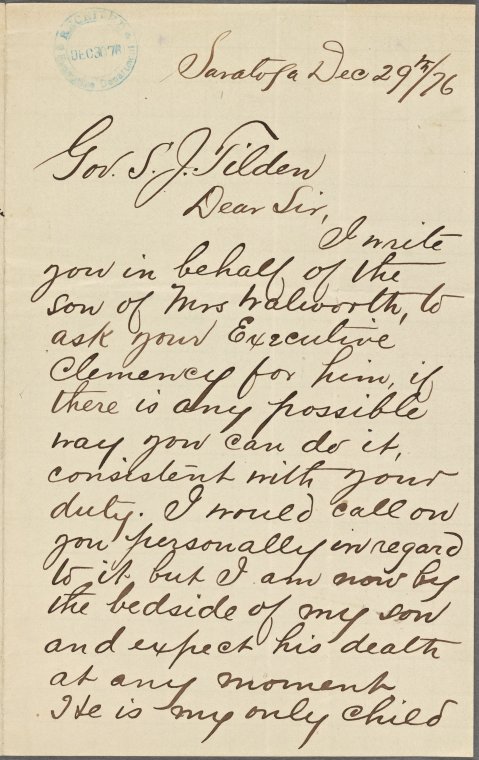 RECEIVED
DEC 30 76
Executive Department
Saratoga Dec 29th/76
Gov. S. J. Tilden
Dear Sir,
I write
you in behalf of the
son of Mrs Walworth, to
ask your Executive
Clemency for him, if
there is any possible
way you can do it,
consistent with your
duty. I would call on
you personally in regard
to it but I am now by
the bedside of my son
and expect his death
at any moment
He is my only child